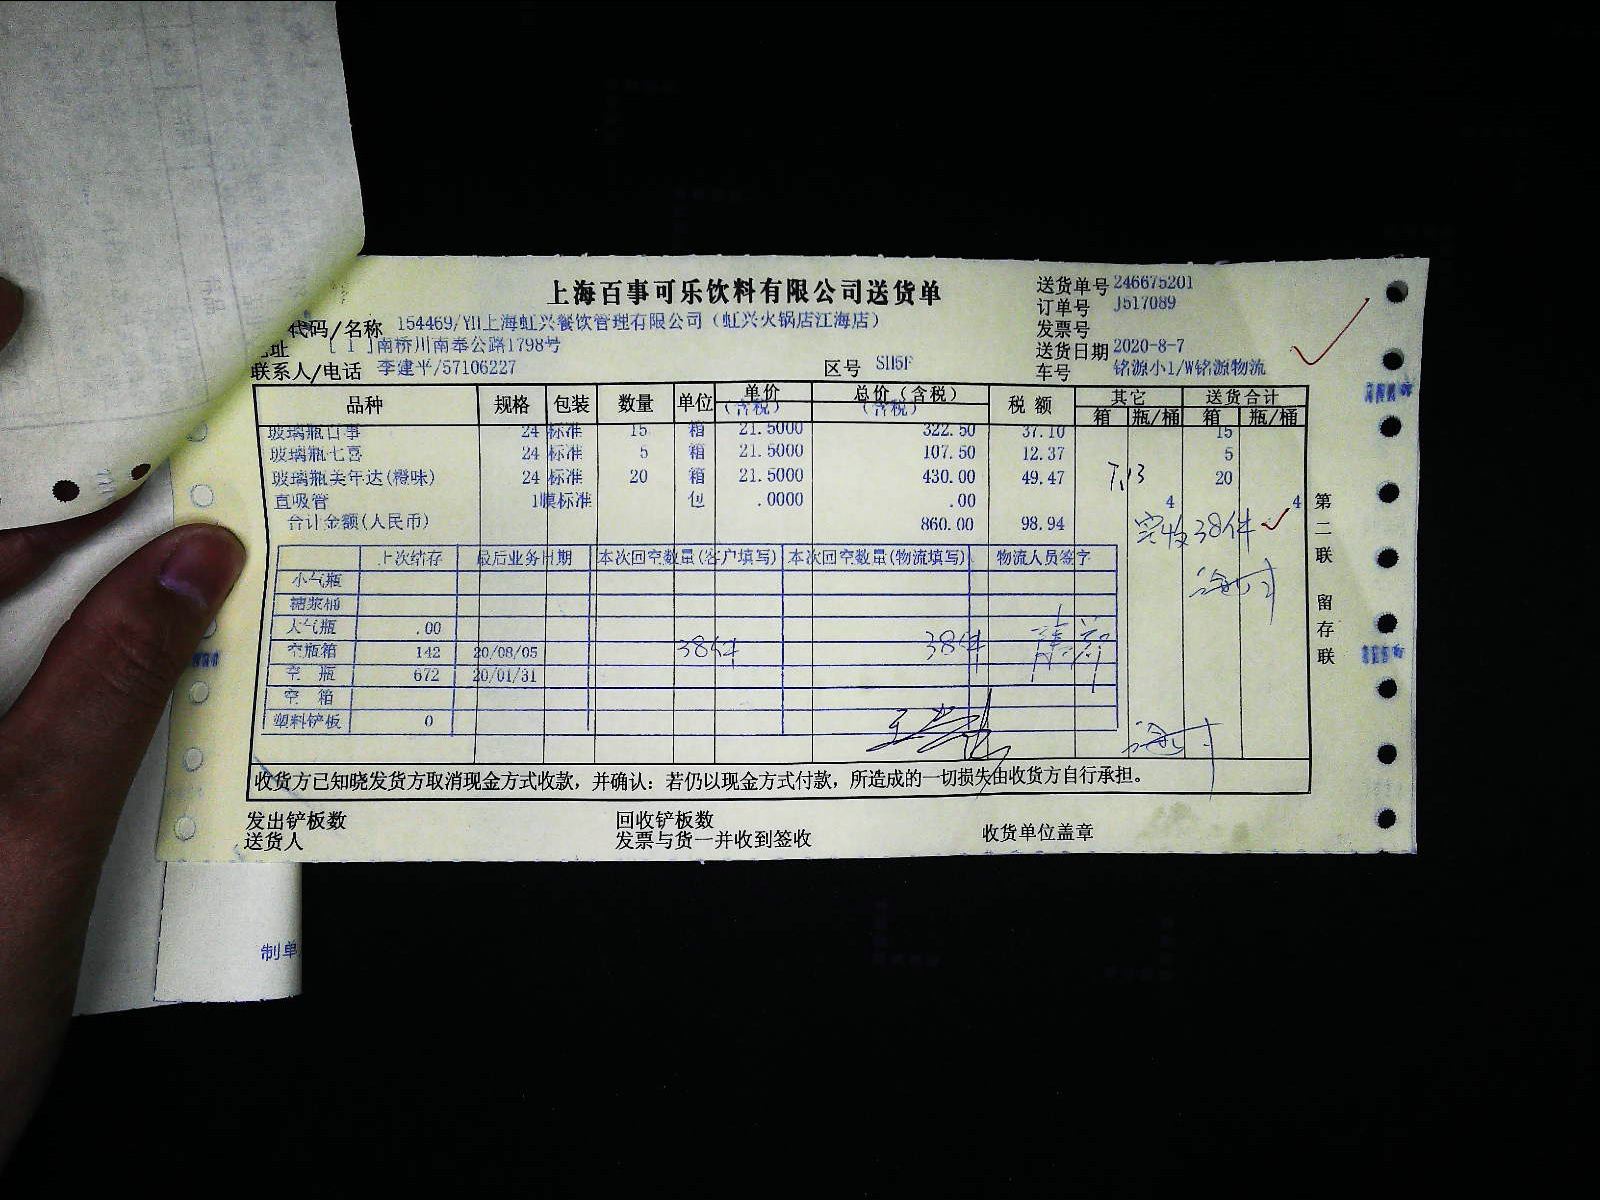 上海百事可乐饮料有限公司送货单
送货单号 246675201
订单号 J517089
发票号
送货日期 2020-8-7
车号 铭源小1/W铭源物流
代码/名称 154469/YH上海虹兴餐饮管理有限公司（虹兴火锅店江海店）
地址 [ 1 ]南桥川南奉公路1798号
联系人/电话 李建平/57106227 区号 SH5F
品种 规格 包装 数量 单位 单价(含税) 总价(含税) 税额 其它 送货合计
箱 瓶/桶 箱 瓶/桶
玻璃瓶百事 24 标准 15 箱 21.5000 322.50 37.10 15
玻璃瓶七喜 24 标准 5 箱 21.5000 107.50 12.37 5
玻璃瓶美年达(橙味) 24 标准 20 箱 21.5000 430.00 49.47 7.13 20
直吸管 1膜标准 包 .0000 .00 4 4
合计金额(人民币) 860.00 98.94
实收38件
上次结存 最后业务日期 本次回空数量(客户填写) 本次回空数量(物流填写) 物流人员签字
小气瓶
糖浆桶
大气瓶 .00
空瓶箱 142 20/08/05 38件 38件
空 瓶 672 20/01/31
空 箱
塑料铲板 0
收货方已知晓发货方取消现金方式收款，并确认：若仍以现金方式付款，所造成的一切损失由收货方自行承担。
发出铲板数 回收铲板数
送货人 发票与货一并收到签收 收货单位盖章
第二联 留存联
制单